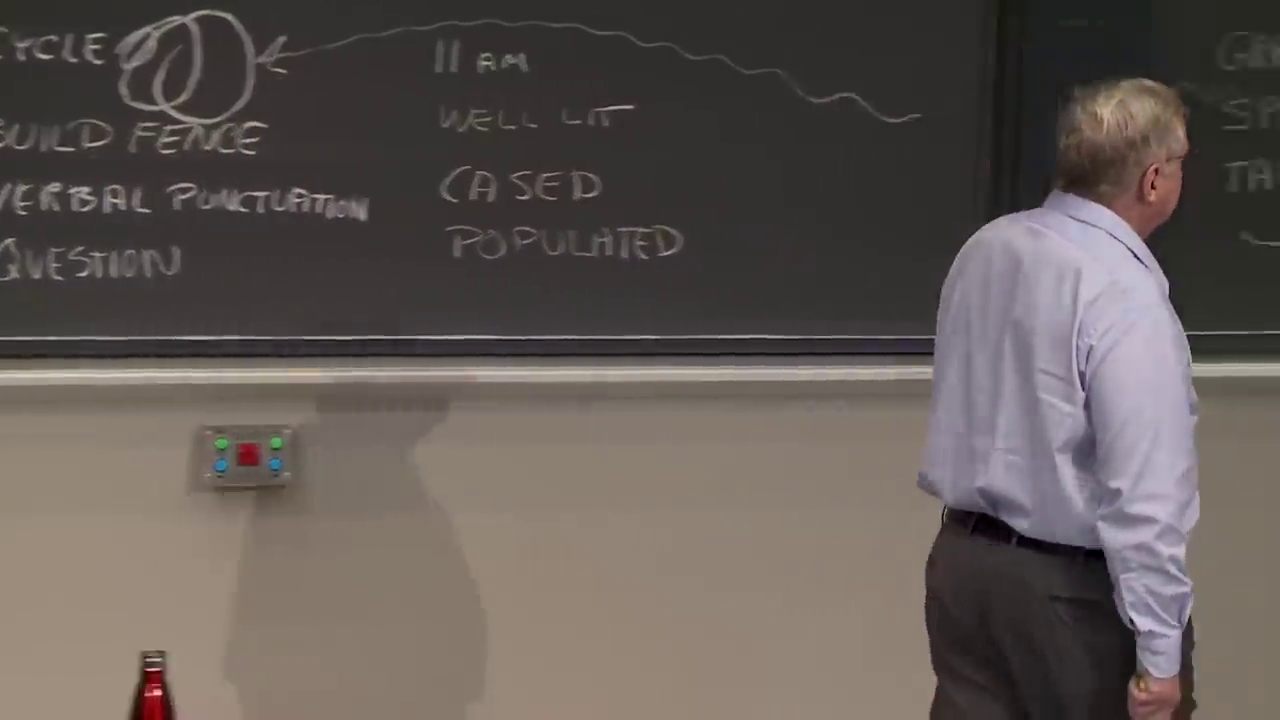 CYCLE
BUILD FENCE
VERBAL PUNCTUATION
QUESTION
11 AM
WELL LIT
CASED
POPULATED